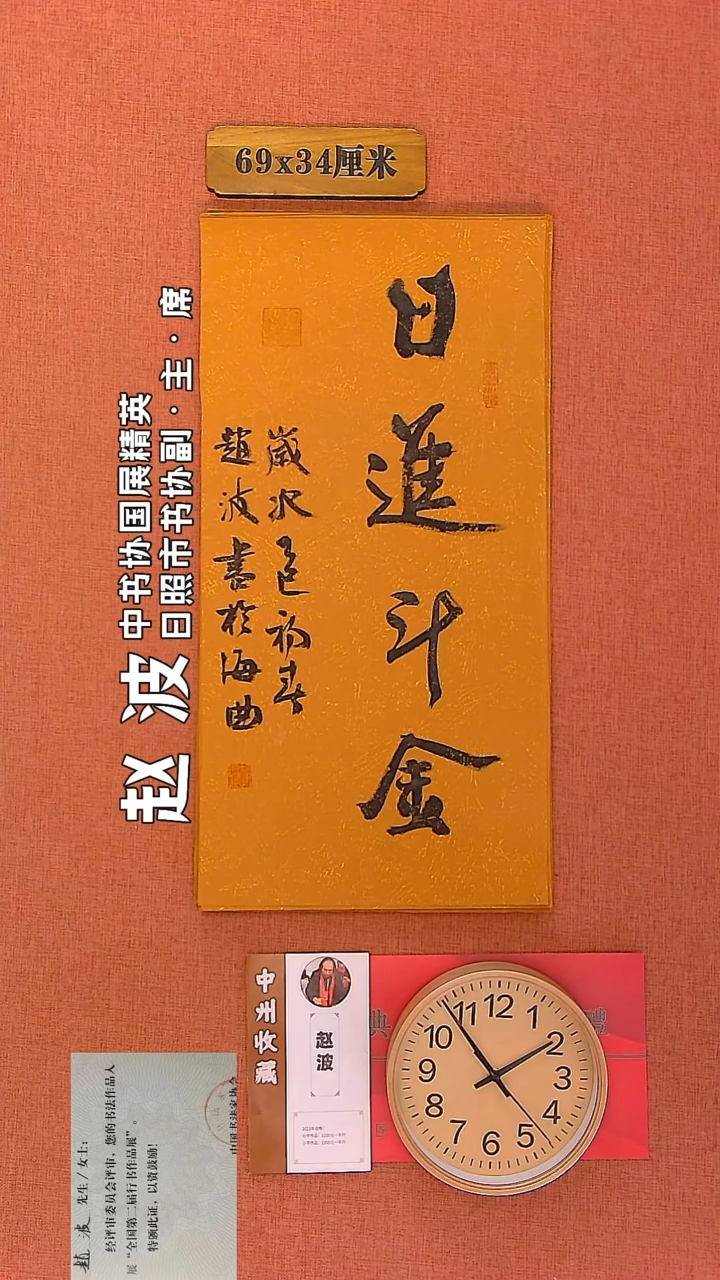 69x34厘米
日進斗金
歲次乙巳初春
趙波書於海曲
赵波
中书协国展精英
日照市书协副·主·席
中生收藏
赵波
12
1
2
3
4
5
6
7
8
9
10
11
趙波 先生/女士:
经评审委员会评审,您的书法作品入
展“全国第二届行书作品展”。
特颁此证,以资鼓励!
中国书法家协会